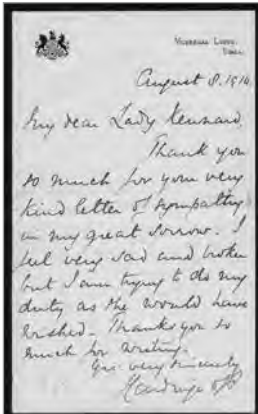 Viceregal Lodge,
Simla.
August 8. 1914.
My dear Lady Kennard,
Thank you
so much for your very
kind letter of sympathy
in my great sorrow. I
feel very sad and broken
but I am trying to do my
duty as she would have
wished. Thank you so
much for writing.
Yrs very sincerely
Hardinge of P